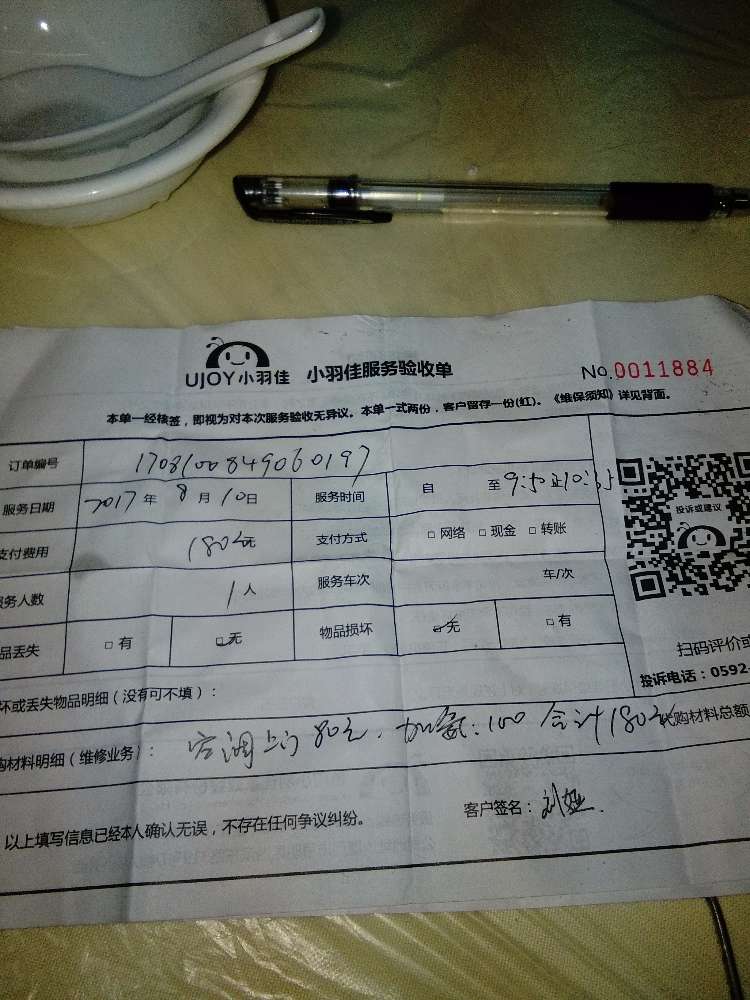 UJOY小羽佳 小羽佳服务验收单 No.0011884
本单一经核签，即视为对本次服务验收无异议。本单一式两份，客户留存一份(红)。《维保须知》详见背面。
订单编号 1708100849060197
服务日期 2017年8月10日 服务时间 自 至 9:50至10:35
支付费用 180元 支付方式 □网络 □现金 □转账
务人数 1人 服务车次 车/次
品丢失 □有 □无 物品损坏 □无 □有
投诉或建议
扫码评价或
投诉电话：0592-
坏或丢失物品明细（没有可不填）：
购材料明细（维修业务）： 空调上门80元，加氟：100 合计180元 代购材料总额
以上填写信息已经本人确认无误，不存在任何争议纠纷。 客户签名：刘